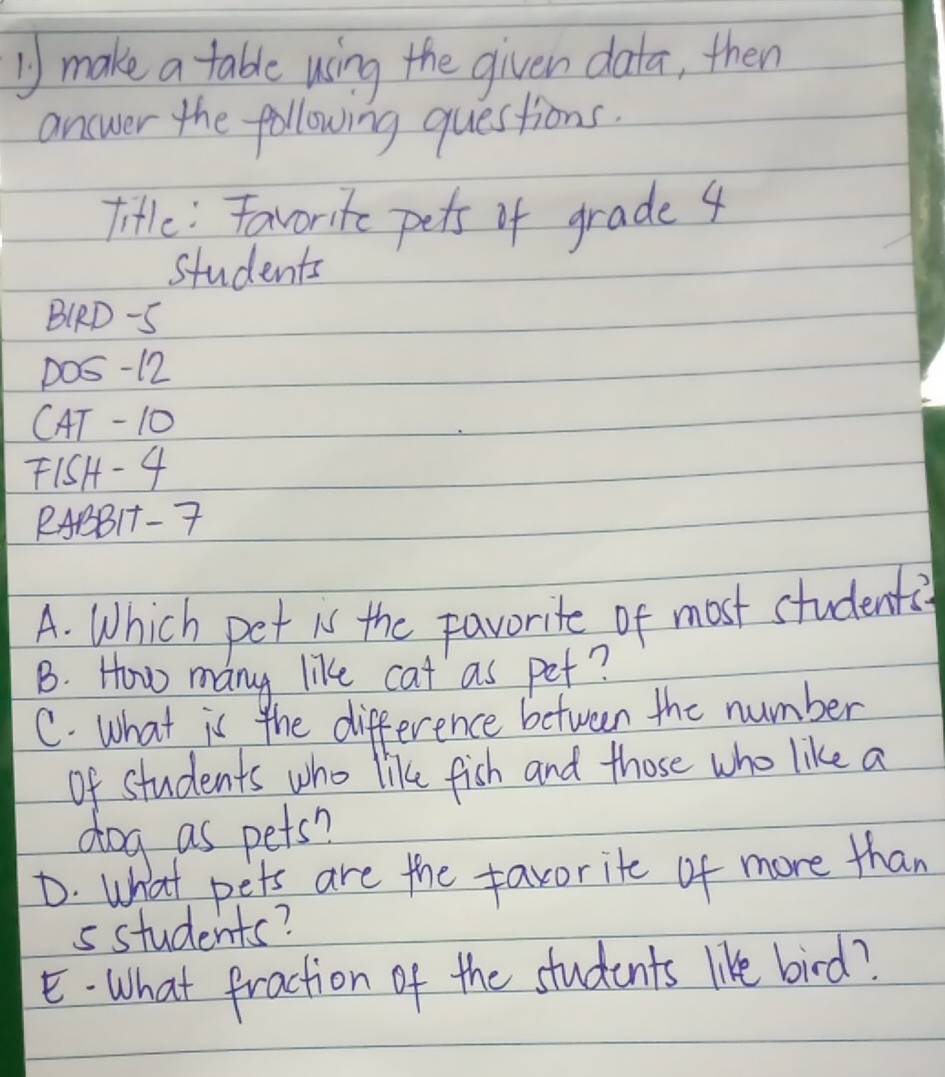 1.) make a table using the given data, then
answer the following questions.
Title: Favorite pets of grade 4
students
BIRD - 5
DOG - 12
CAT - 10
FISH - 4
RABBIT - 7
A. Which pet is the favorite of most students?
B. How many like cat as pet?
C. What is the difference between the number
of students who like fish and those who like a
dog as pets?
D. What pets are the favorite of more than
5 students?
E. What fraction of the students like bird?